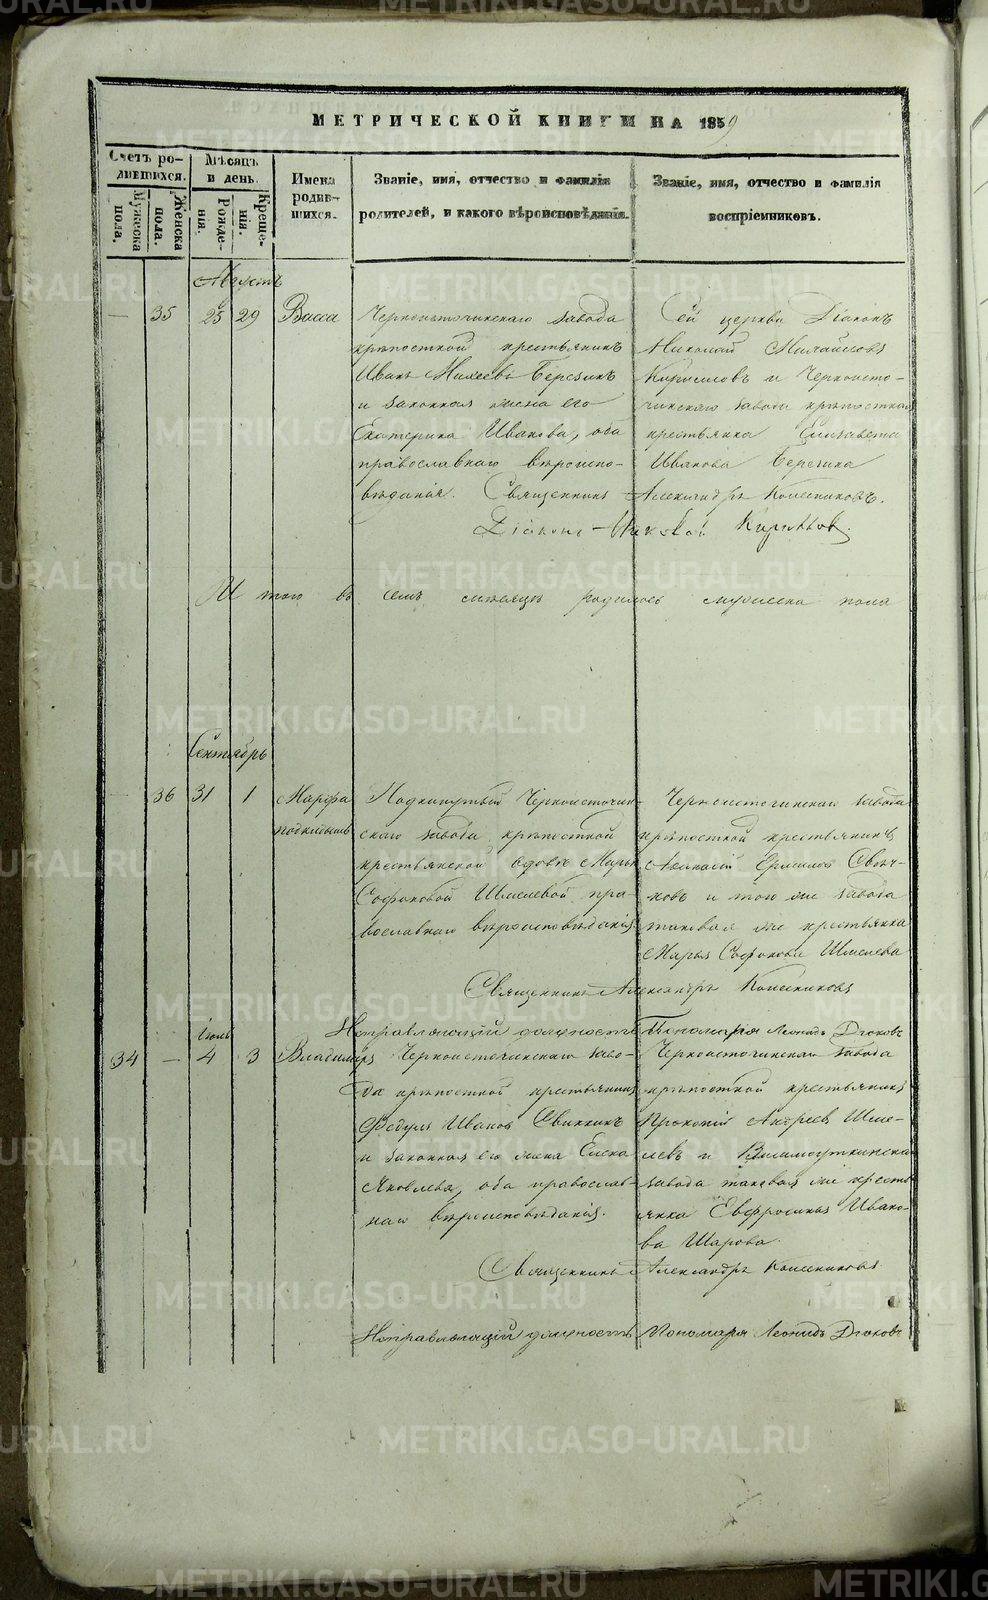 МЕТРИЧЕСКОЙ КНИГИ НА 1859
Счетъ родившихся.
Мужеска пола.
Женска пола.
Мѣсяцъ и день.
Рожденія.
Крещенія.
Имена родившихся.
Званіе, имя, отчество и фамилія
родителей, и какого вѣроисповѣданія.
Званіе, имя, отчество и фамилія
воспріемниковъ.
Августъ
— 35 25 29 Васса
Черноисточинскаго завода
крѣпостной крестьянинъ
Иванъ Михеевъ Березинъ
и законная жена его
Екатерина Иванова, оба
православнаго вѣроиспо-
вѣданія.
Сей церкви Діаконъ
Николай
Кирилловъ и Черноисто-
чинскаго завода крѣпостная
крестьянка Елизавета
Иванова Березина
Священникъ Александръ Колесниковъ.
Діаконъ Николай Кирилловъ.
И того въ семъ мѣсяцѣ родилось мужеска пола
Сентябрь
— 36 31 1 Марфа
подкидышъ
Подкинутый Черноисточин-
скаго завода крѣпостной
крестьянской вдовѣ Марьѣ
Софоновой Шмелевой пра-
вославнаго вѣроисповѣданія
Черноисточинскаго завода
крѣпостной крестьянинъ
Афанасій Ермиловъ
и того же завода
таковая же крестьянка
Марья Софонова Шмелева
Священникъ Александръ Колесниковъ
Исправляющій должность Пономаря Леонидъ Дягковъ
Іюль
34 — 4 3 Владиміръ
Черноисточинскаго заво-
да крѣпостной крестьянинъ
Федулъ Ивановъ Свининъ
и законная его жена Елена
Яковлева, оба православ-
наго вѣроисповѣданія.
Черноисточинскаго завода
крѣпостной крестьянинъ
Прокопій Андреевъ Шме-
левъ и Висимоуткинскаго
завода таковая же кресть-
янка Евфросинья Ивано-
ва Шарова.
Священникъ Александръ Колесниковъ
Исправляющій должность Пономаря Леонидъ Дягковъ
METRIKI.GASO-URAL.RU